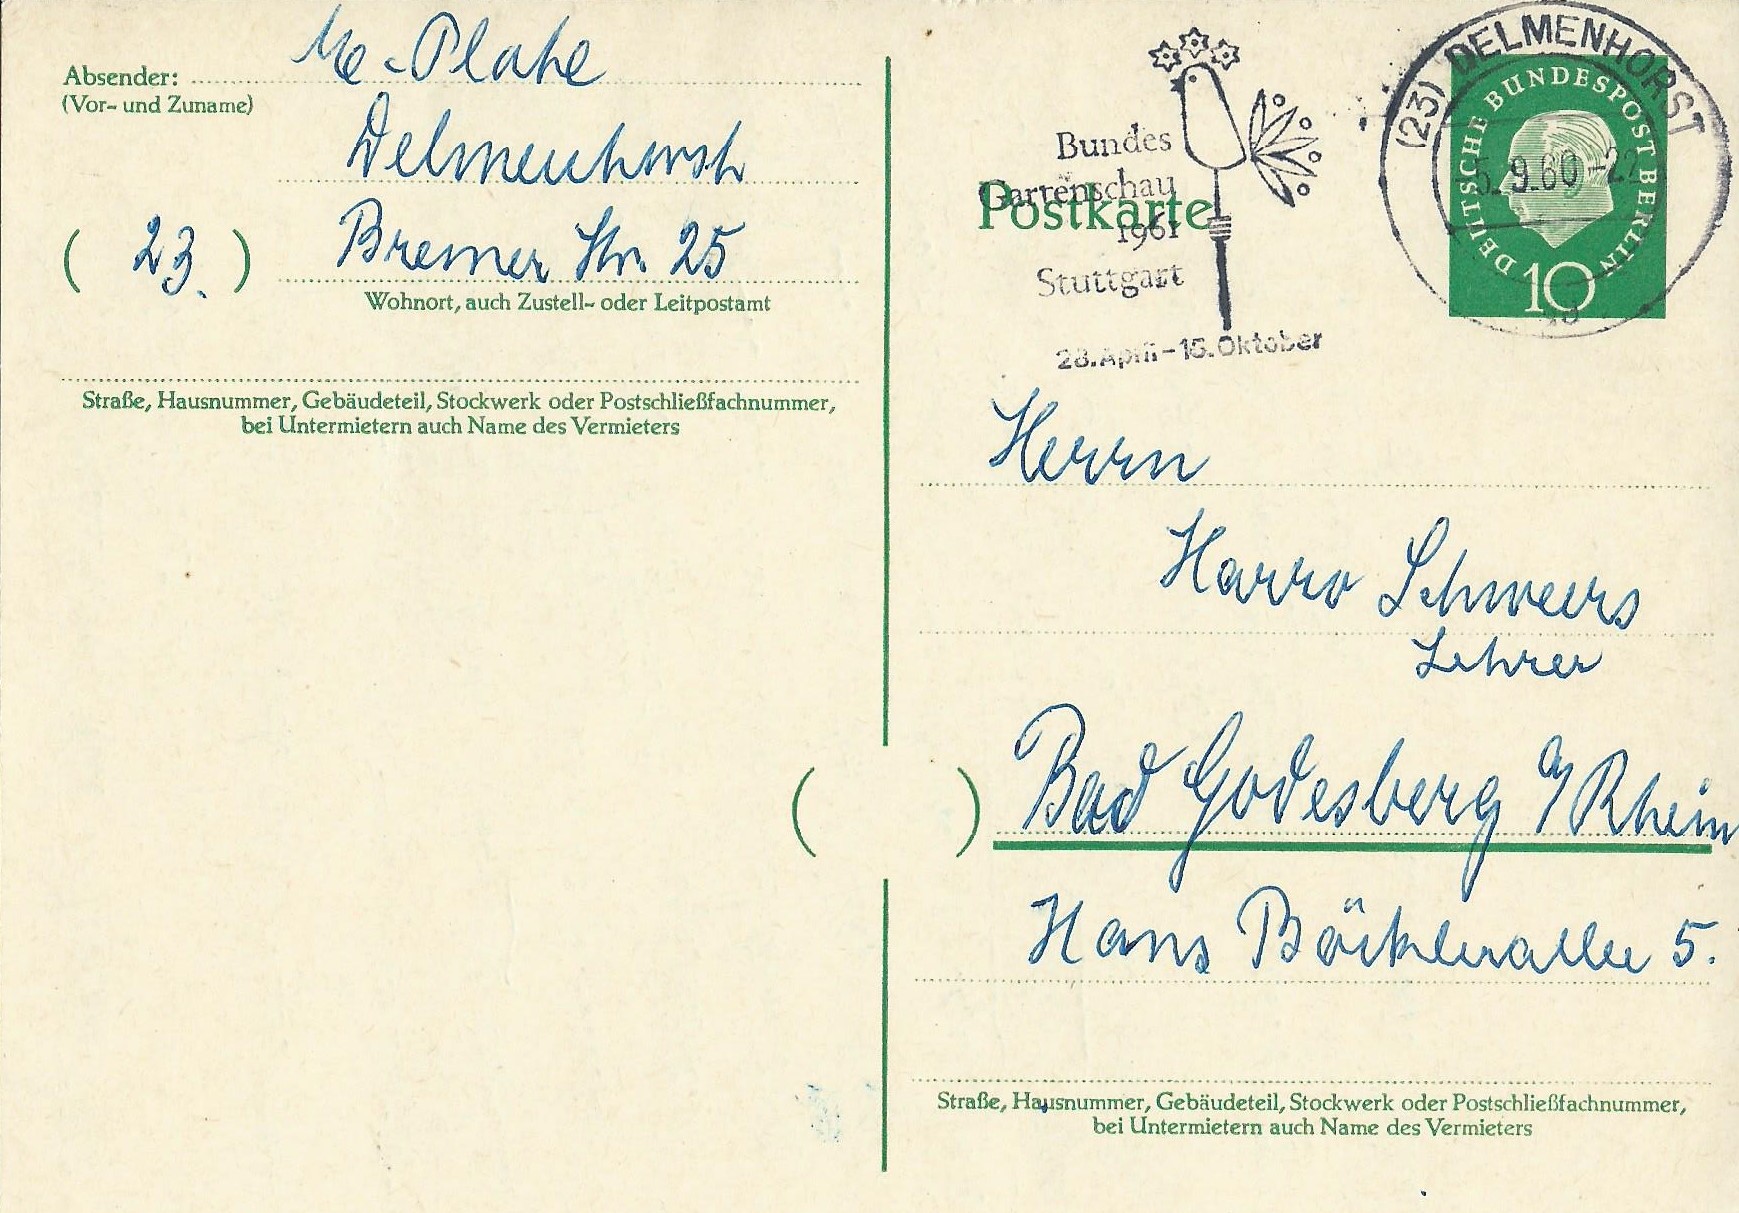 Absender: Me-Plate
(Vor- und Zuname)
Delmenhorst
( 23. ) Bremer Str. 25
Wohnort, auch Zustell- oder Leitpostamt
Straße, Hausnummer, Gebäudeteil, Stockwerk oder Postschließfachnummer,
bei Untermietern auch Name des Vermieters
Bundes
Gartenschau
1961
Stuttgart
28. April - 15. Oktober
Postkarte
(23) DELMENHORST
5.9.60-22
DEUTSCHE BUNDESPOST BERLIN
10
Herrn
Harro Schweers
Lehrer
Bad Godesberg a/Rhein
Hans Böckleralle 5.
Straße, Hausnummer, Gebäudeteil, Stockwerk oder Postschließfachnummer,
bei Untermietern auch Name des Vermieters